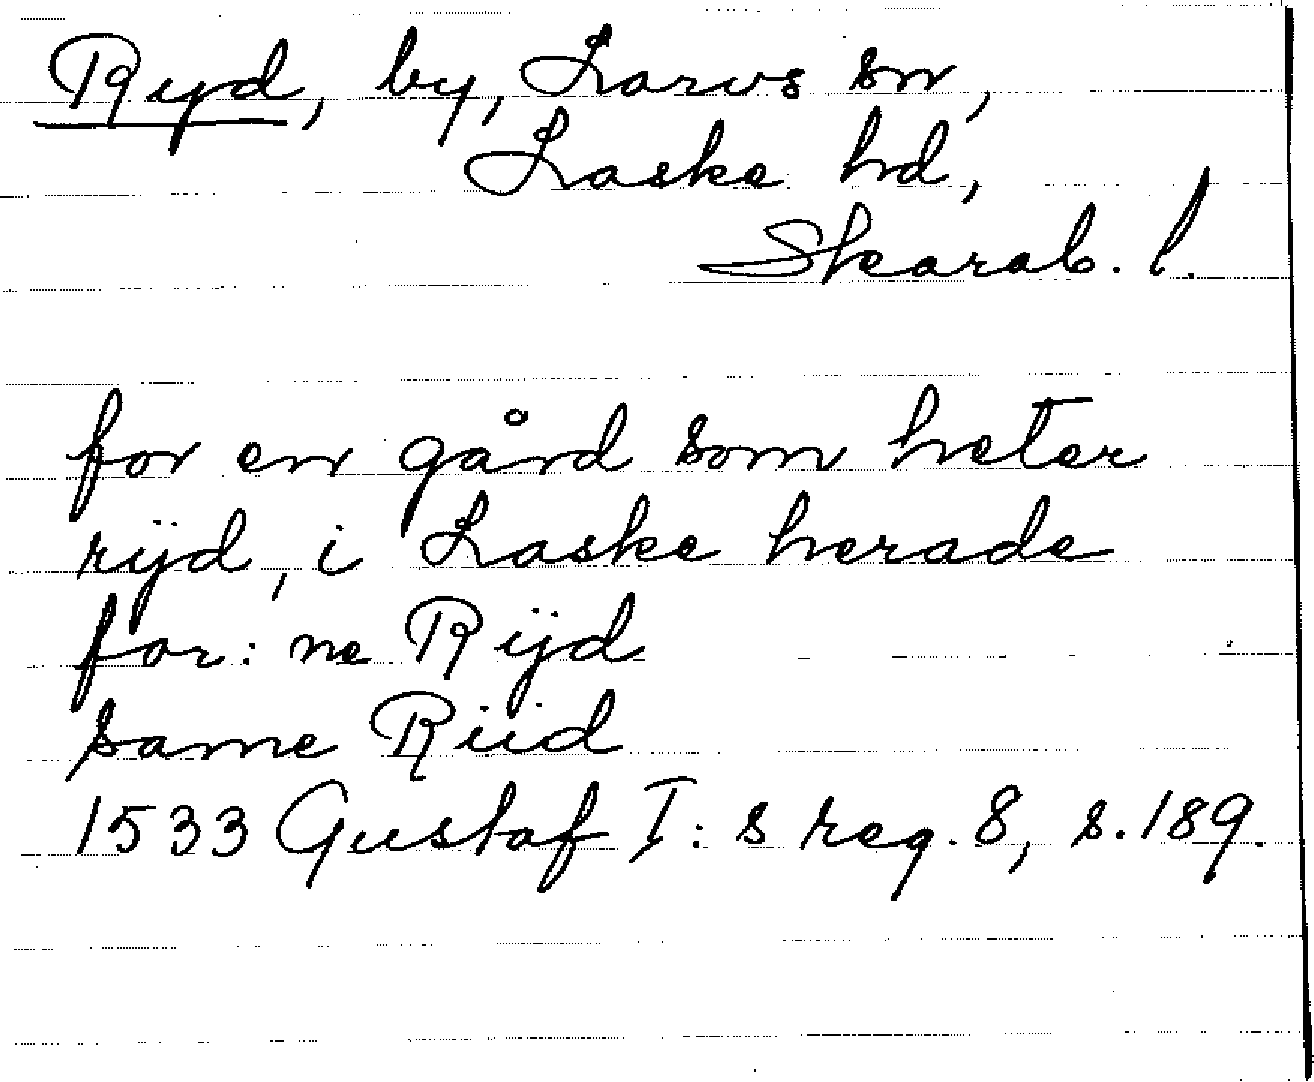 Ryd, by, Larvs sn,
Laske hd,
Skarab. l.
for en gård som heter
rÿd, i Laske herade
for: ne Rÿd
same Riid
1533 Gustaf I: s reg. 8, s. 189.